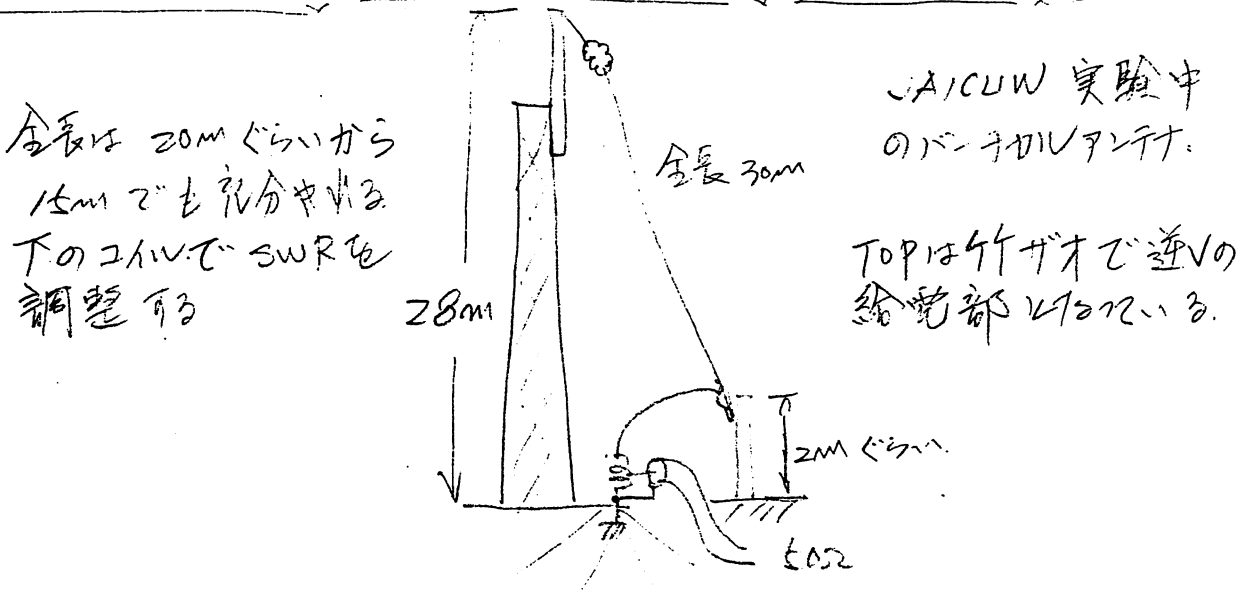 全長は 20m ぐらいから
15m でも充分やれる
下のコイルで SWRを
調整する
28m
全長 30m
JA1CUW 実験中
のバーチカルアンテナ.
TOPは竹ザオで逆Vの
給電部となっている.
2m ぐらい.
50Ω